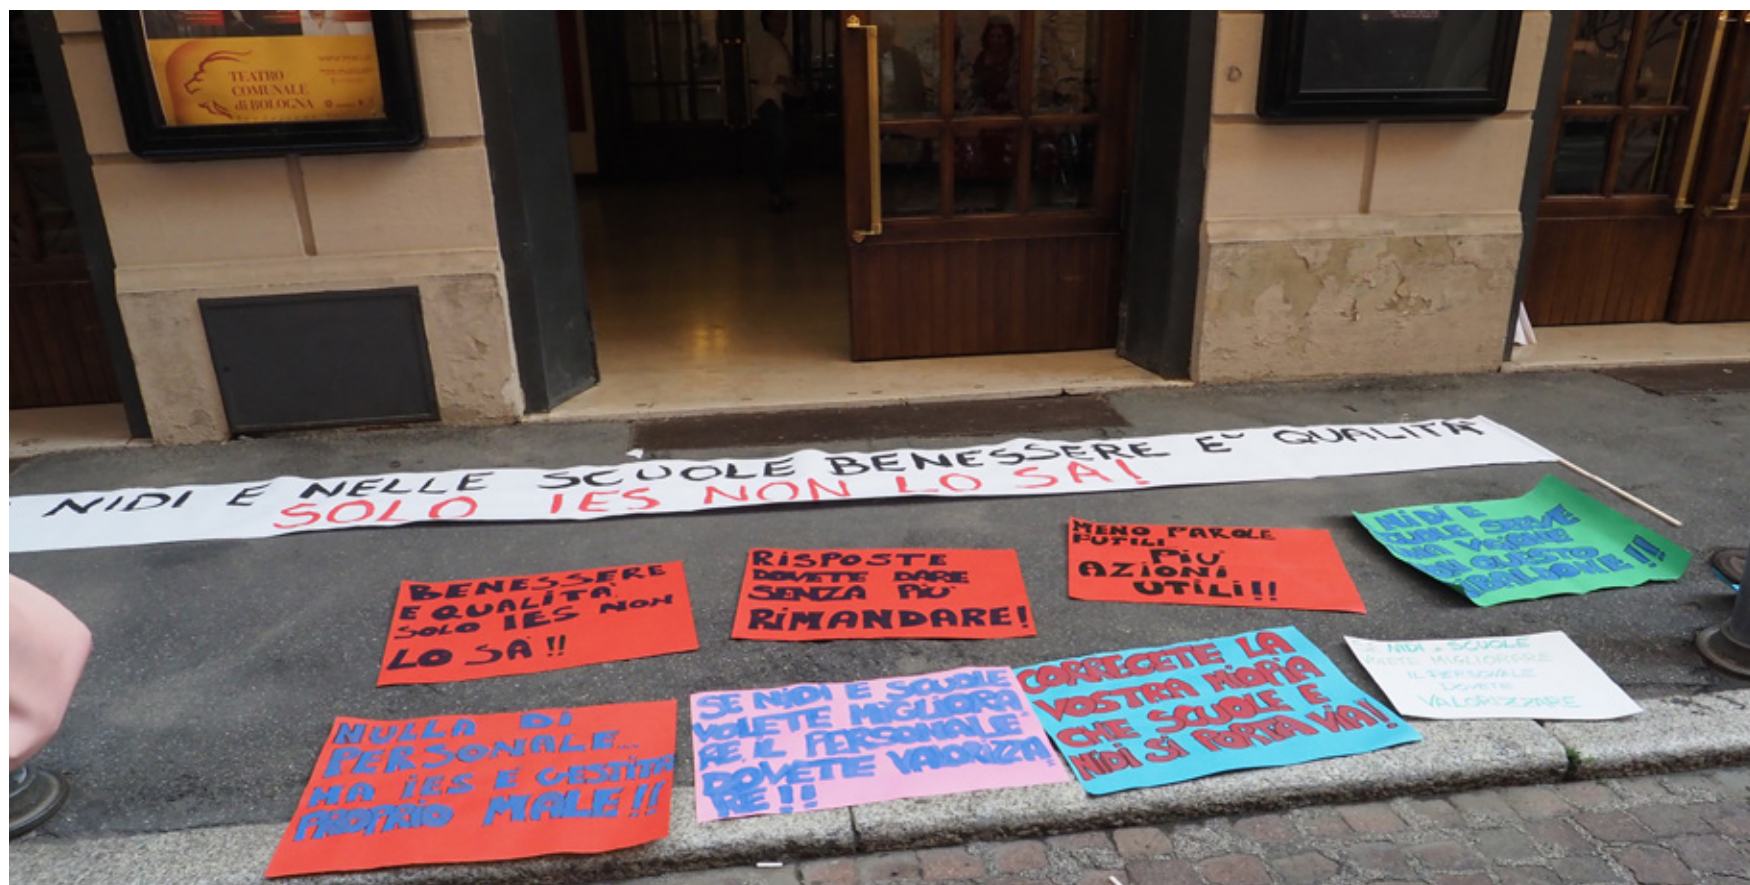 TEATRO
COMUNALE
di BOLOGNA
NIDI E NELLE SCUOLE BENESSERE E' QUALITA'
SOLO IES NON LO SA!
BENESSERE
E QUALITA'
SOLO IES NON
LO SA!!
RISPOSTE
DOVETE DARE
SENZA PIU'
RIMANDARE!
MENO PAROLE
FUTILI
PIU'
AZIONI
UTILI!!
NIDI E
SERVE
VISIONE
QUESTO
!!!
NULLA DI
PERSONALE...
MA IES E GESTITA
PROPRIO MALE!!
SE NIDI E SCUOLE
VOLETE MIGLIORA
RE IL PERSONALE
DOVETE VALORIZZA
RE!!
CORREGETE LA
VOSTRA MIOPIA
CHE SCUOLE E
NIDI SI PORTA VIA!
SE NIDI E SCUOLE
VOLETE MIGLIORARE
IL PERSONALE
DOVETE
VALORIZZARE